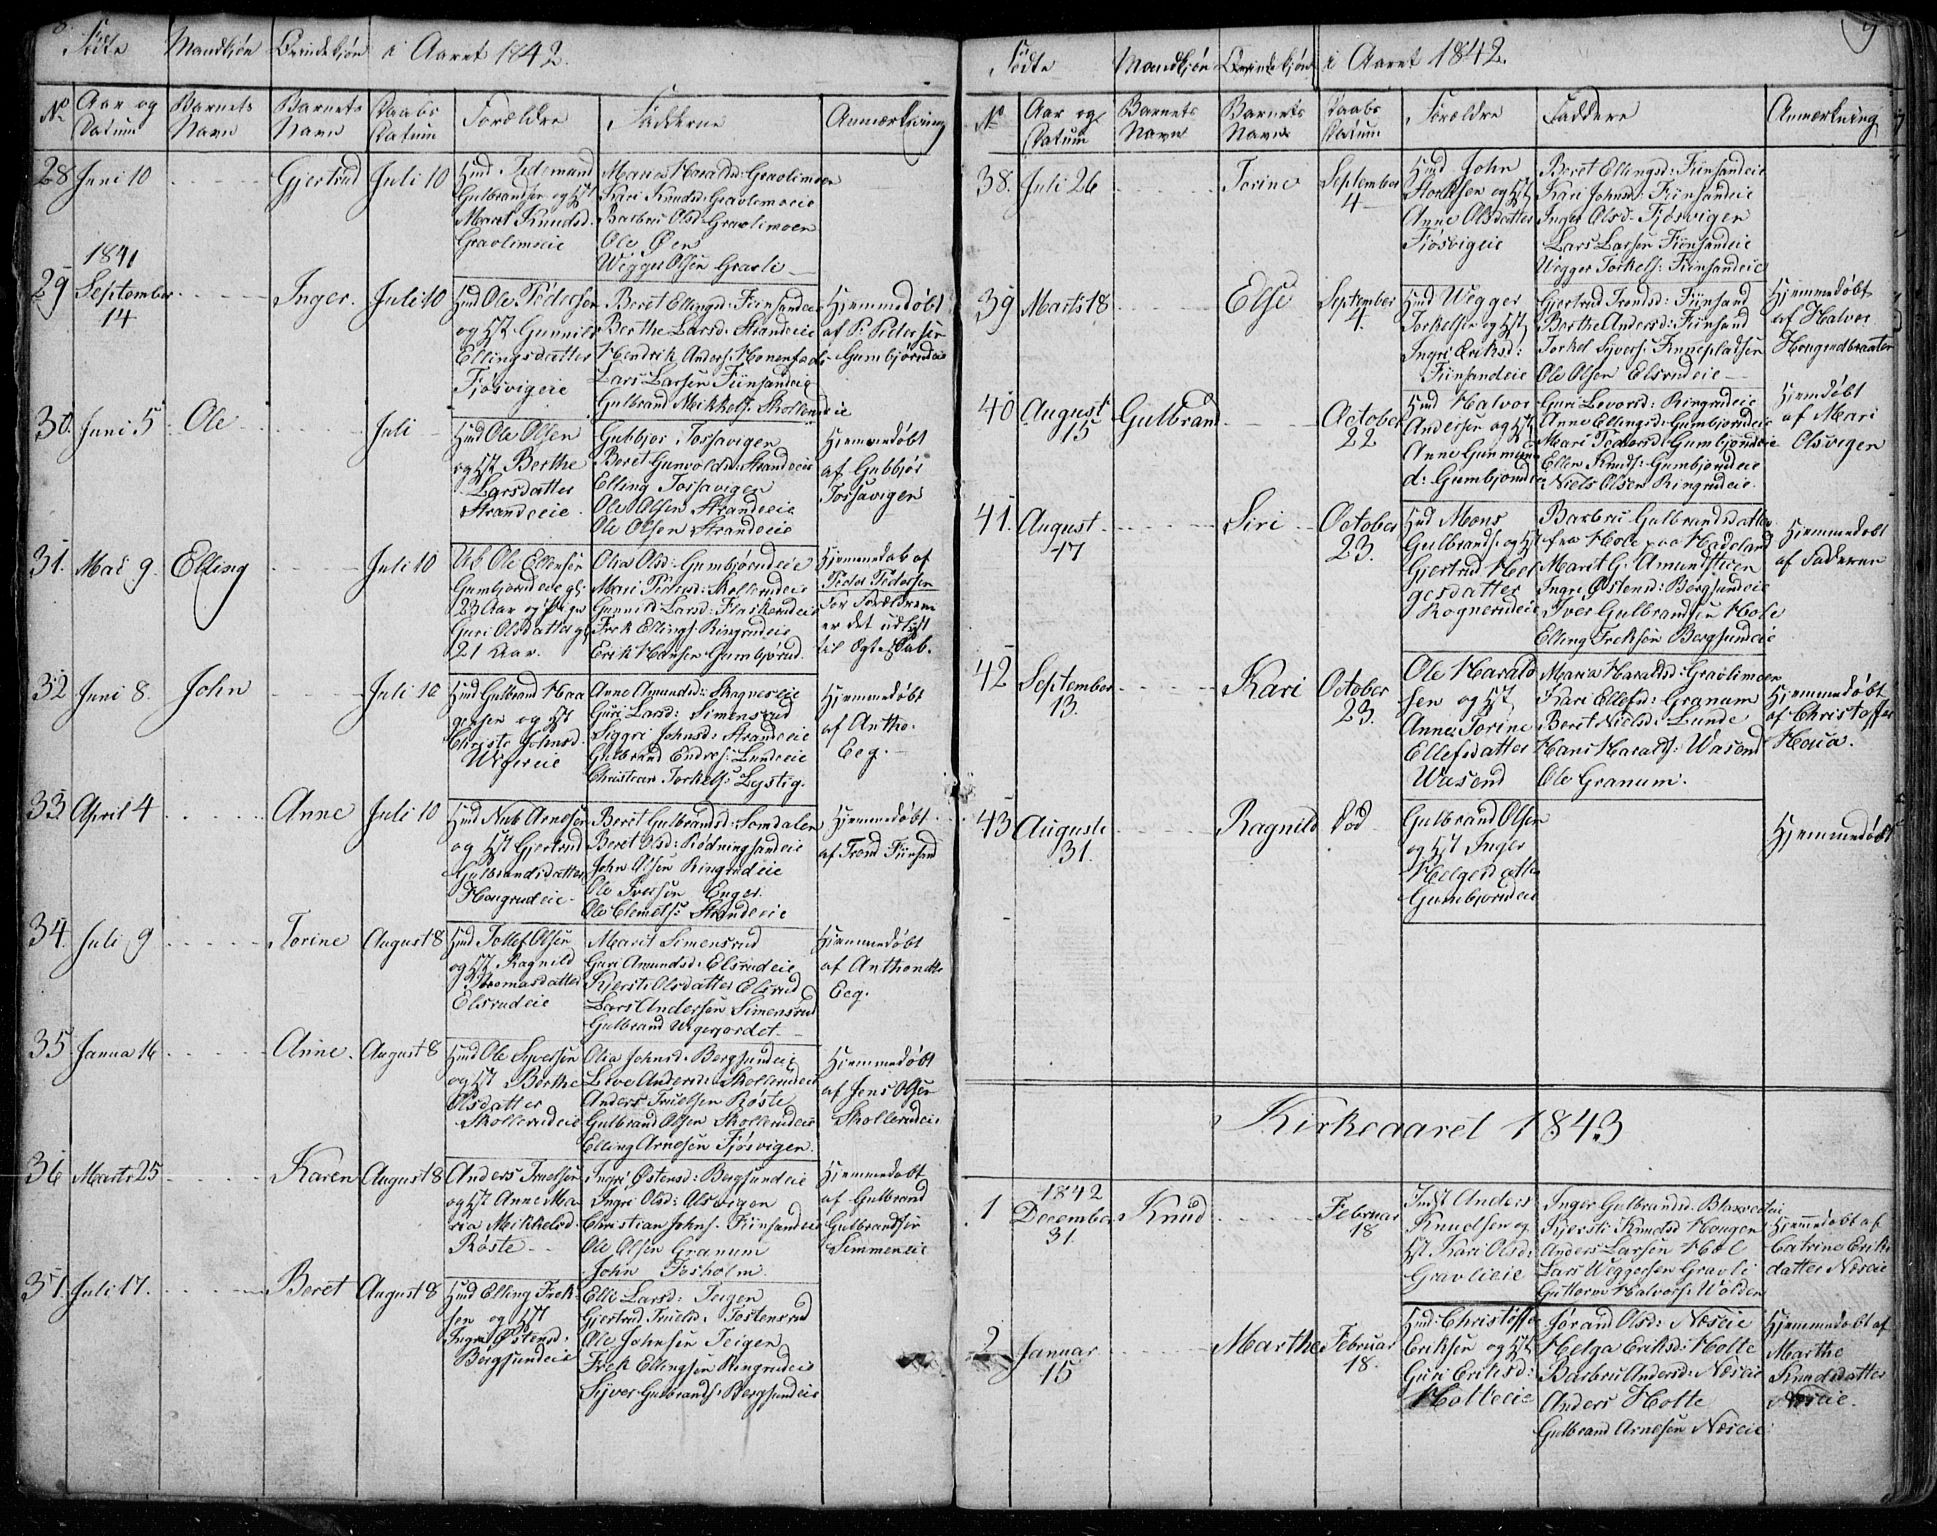 8.
Fødte Mandkjøn Qvindekjøn i Aaret 1842.
No Aar og Datum Barnets Navn Barnets Navn Daabs Datum Forældre Fadderne Anmerkning
28 Juni 10 Gjertrud Juli 10
Hmd Tidemand
Gulbrandsen og Hst
Maret Knudsd:
Gravlimseie
Maria Haraldsd: Gravlimoen
Kari Knudsd: Gravlimoeie
Barbru Olsd: Gravlimoen
Ole Øen
Wegger Olsen Gravli
29 1841 September 14 Inger. Juli 10
Hmd Ole Pedersen
og Hst Gunnild
Ellingsdatter
Fjøsvigeie
Beret Ellingsd: Fiinsandeie
Berthe Larsd: Strandeie
Hendrik Anders: Hønenfode
Lars Larsen Fiinsandeie
Gulbrand Mikkels: Skollerudeie
Hjemmedøbt
af P. Pedersen
Gumbjørudeie
30. Juni 5 Ole Juli
Hmd Ole Olsen
og Hst Berthe
Larsdatter
Strandeeie
Gubbjør Tossavigen
Beret Gunvoldsd: Strandeeie
Elling Tossavigen
Ole Olsen Strandeeie
Ole Olsen Strandeeie
Hjemmedøbt
af Gubbjør
Tossavigen
31. Mai 9 Elling Juli 10
Ub Ole Ellensen
Gumbjørudeie gl:
23 Aar og Pige
Guri Olsdatter gl
21 Aar.
Olia Olsd: Gumbjørudeie
Mari Pedersd: Skollerudeie
Gunnild Larsd: Flaskerudeie
Frek Ellings: Ringrudeie
Erik Hansen Gumbjørud.
Hjemmedøb af
Peder Pedersen
For Forældrene
er det udlyst
til Egteskab.
32 Juni 8. John Juli 10
Hmd Gulbrand Haa
gensen og Hst
Christi Johnsd.
Wegereie
Anne Amundsd: Skagneseie
Guri Larsd: Simensrud
Siggri Johnsd: Strandeeie
Gulbrand Endres: Lundeeie
Christian Torkels: Lystig.
Hjemmedøbt
af Antho.
Eeg.
33. April 4 Anne Juli 10
Hmd Nub Arnesen
og Hst Gjertrud
Gulbrandsdatter
Hougrudeie.
Beret Gulbrandsd: Somdalen
Beret Olsd: Rødningsandeie
John Olsen Ringrudeie
Ole Iversen Enger.
Ole Clemets: Strandeeie
Hjemmedøbt
af Trond Fiinsand
34. Juli 9 Torine August 8
Hmd Tollef Olsen
og Hst Ragnild
Thomasdatter
Elsrudeie
Marit Simensrud
Guri Amundsd: Elsrudeie
Kjersti Olsdatter Elsrud
Lars Andersen Simensrud
Gulbrand Wegerjordet
Hjemmedøbt
af Anthonette
Eeg.
35 Janua 16 Anne. August 8
Hmd Ole Syversen
og Hst Berthe
Olsdatter
Skollerudeie
Olia Johnsd. Bergsundeie
Live Andersd: Skollerudeie
Anders Truelsen Røste
Gulbrand Olsen Skollerudeie
Elling Arnesen Fjøsvigen.
Hjemmedøbt
af Jens Olsen
Skollerudeie
36 Marts 25 Karen August 8
Anders Truelsen
og Hst Anne Ma
ria Mikkelsd.
Røste
Ingri Østensd: Bergsundeie
Ingri Olsd: Alsvigen
Christian Johns: Fiinsandeie
Ole Olsen Granum
John Fosholm.
Hjemmedøbt
af Gulbrand
Gulbrandsen
Semmeneie
37. Juli 17. Beret August 8
Hmd Elling Frek-
sen og Hst
Ingri Østensd:
Bergsundeie
Elli Larsd: Teigen
Gjertrud Truelsd. Tostensrud
Ole Johnsen Teigen
Frek Ellingsen Ringrudeie
Syver Gulbrands: Bergsundeie
9
Fødte Mandkjøn Qvindekjøn i Aaret 1842.
No Aar og Datum Barnets Navn Barnets Navn Daabs Datum Forældre Faddere Anmerkning
38. Juli 26 Torine September 4
Hmd John
Storksen og Hst
Anne Olsdatter
Fjøsvigeie
Beret Ellingsd: Fiinsandeie
Kari Johnsd: Fiinsandeie
Inger Olsd. Fjøsvigen
Lars Larsen Fiinsandeie
Wegger Torkels: Fiinsandeie
39 Marts 18 Else September 4.
Hmd Wegger
Torkelsen og Hst
Ingri Eriksd:
Fiinsandeie
Gjertrud Trondsd: Fiinsand
Berthe Andersd: Fiinsand
Torkel Syvers: Finnepladsen
Ole Olsen Elsrudeie
Hjemmedøbt
af Halvor
Hougrudbraaten
40 August 15 Gulbrand October 22
Hmd Halvor
Andersen og Hst
Anne Gunmun
d: Gumbjørudeie
Guri Levorsd: Ringrudeie
Anne Ellingsd: Gumbjørudeie
Mari Pedersd: Gumbjørudeie
Ellen Knuds: Gumbjørudeie
Niels Olsen Ringrudeie.
Hjemdøbt
af Mari
Olsvigen
41. August 17 Siri October 23.
Hmd Mons
Gulbrands: og Hst
Gjertrud Hel
gesdatter
Rognerudeie
Barbru Gulbrandsdatter
fra Hole paa Hadeland
Marit G. Amundstuen
Ingri Østensd: Bergsundeie
Iver Gulbrandsen Hole
Elling Freksen Bergsundeie
Hjemmedøbt
af Faderen
42 September 13. Kari October 23.
Ole Harald
sen og Hst
Anne Torine
Ellefsdatter
Wasend
Maria Haraldsd: Gravlimoen
Kari Ellefsd: Granum
Beret Nielsd: Lunde
Hans Haralds: Wasend
Ole Granum.
Hjemmedøbt
af Christoffer
Houa.
43 Auguste 31. Ragnild Død
Gulbrand Olsen
og Hst Inger
Helgesdatter
Gumbjørudeie
Hjemmedøbt
Kirkeaaret 1843
1 1842 December 31. Knud Februar 18
Inst Anders
Knudsen og
Hst Kari Olsd:
Gravlieie
Inger Gulbrandsd. Blaxvedeie
Kjersti Knudsd Haugen
Anders Larsen Høl
Lars Weggersen Gravli
Guttorm Halvors: Wolden
Hjemmedøbt af
Catrine Eriks
datter Næseie
2 Januar 15 Marthe Februar 18.
Hmd: Christoffer
Eriksen og Hst
Guri Eriksd:
Holteeie
Jørand Olsd: Næseie
Helga Eriksd: Holte
Barbru Andersd: Næseie
Anders Holte
Gulbrand Arnesen Næseie
Hjemmedøbt af
Marthe
Knudsdatter
Næseie.